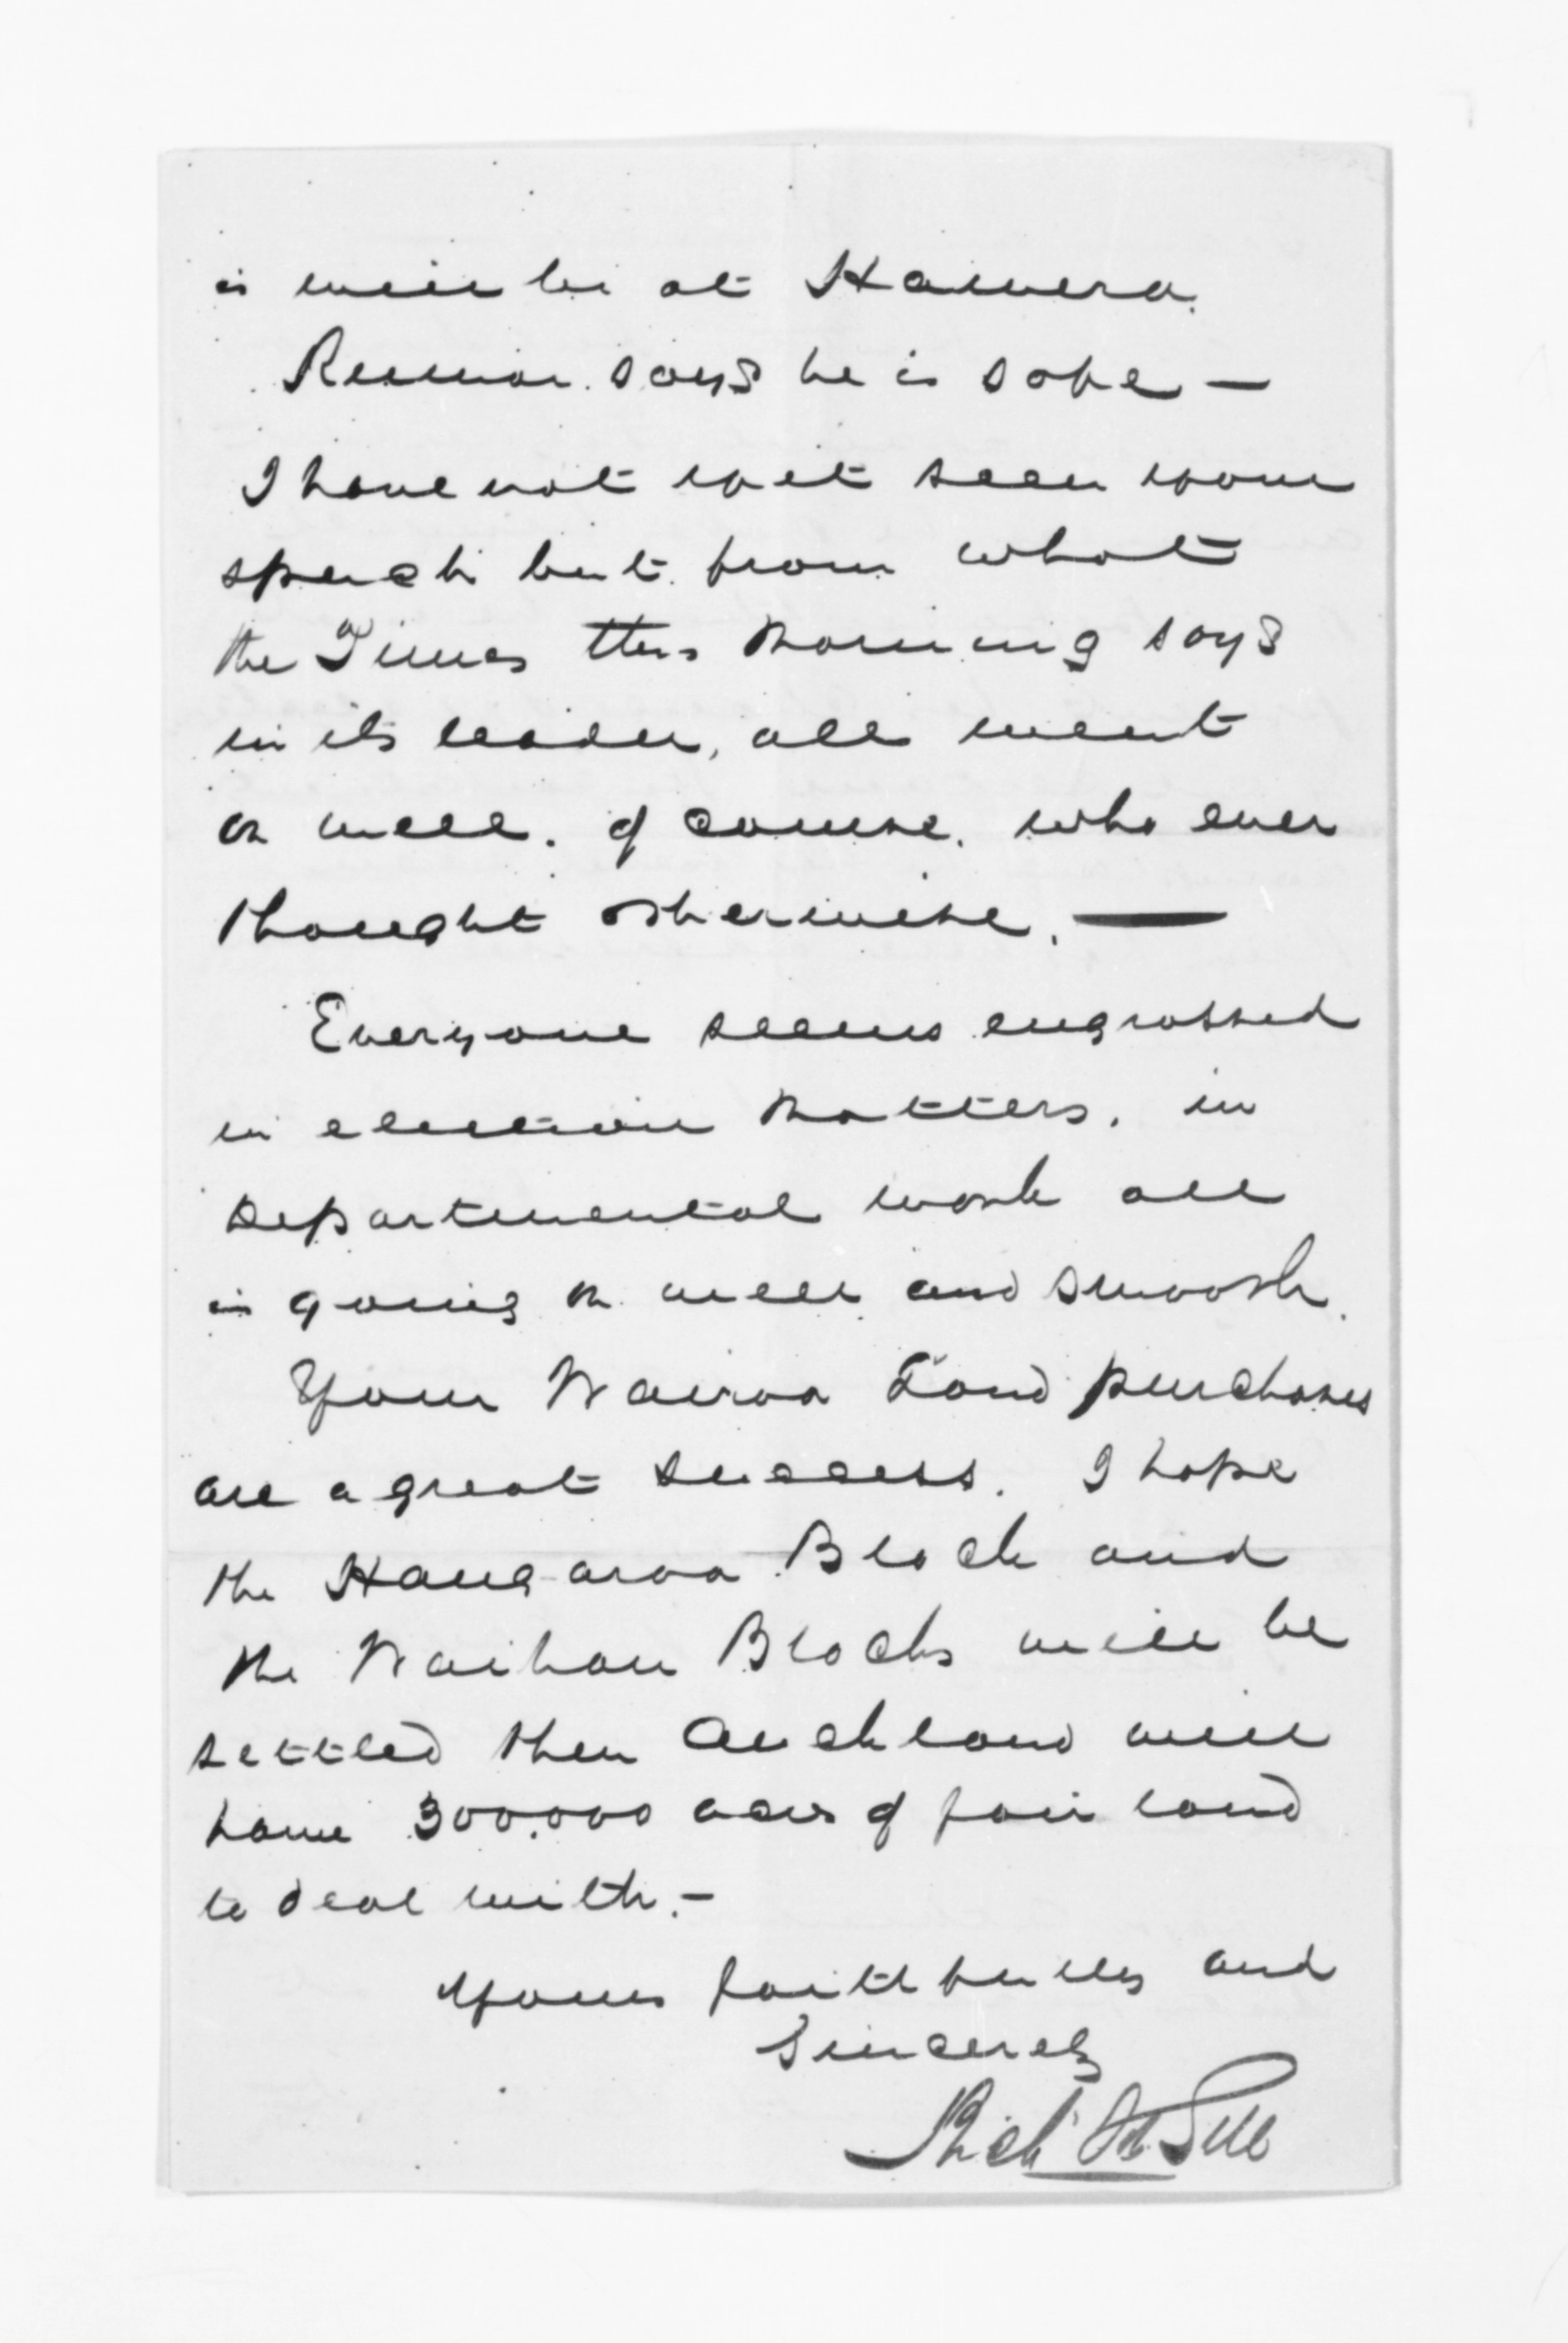 is will be at Hawera.
says he is safe —
I have not yet seen your
speech but from what
the Times this morning says
in its leader, all went
on well. of course. who ever
thought otherwise. —
Everyone seems engrossed
in election matters. in
Departmental work all
is going on well and smooth.
Your Wairoa Land purchases
are a great success. I hope
the Hangaroa Block and
the Waihau Blocks will be
settled then Auckland will
have 300.000 acres of fair land
to deal with. -
Yours faithfully and
Sincerely
Rich Gill